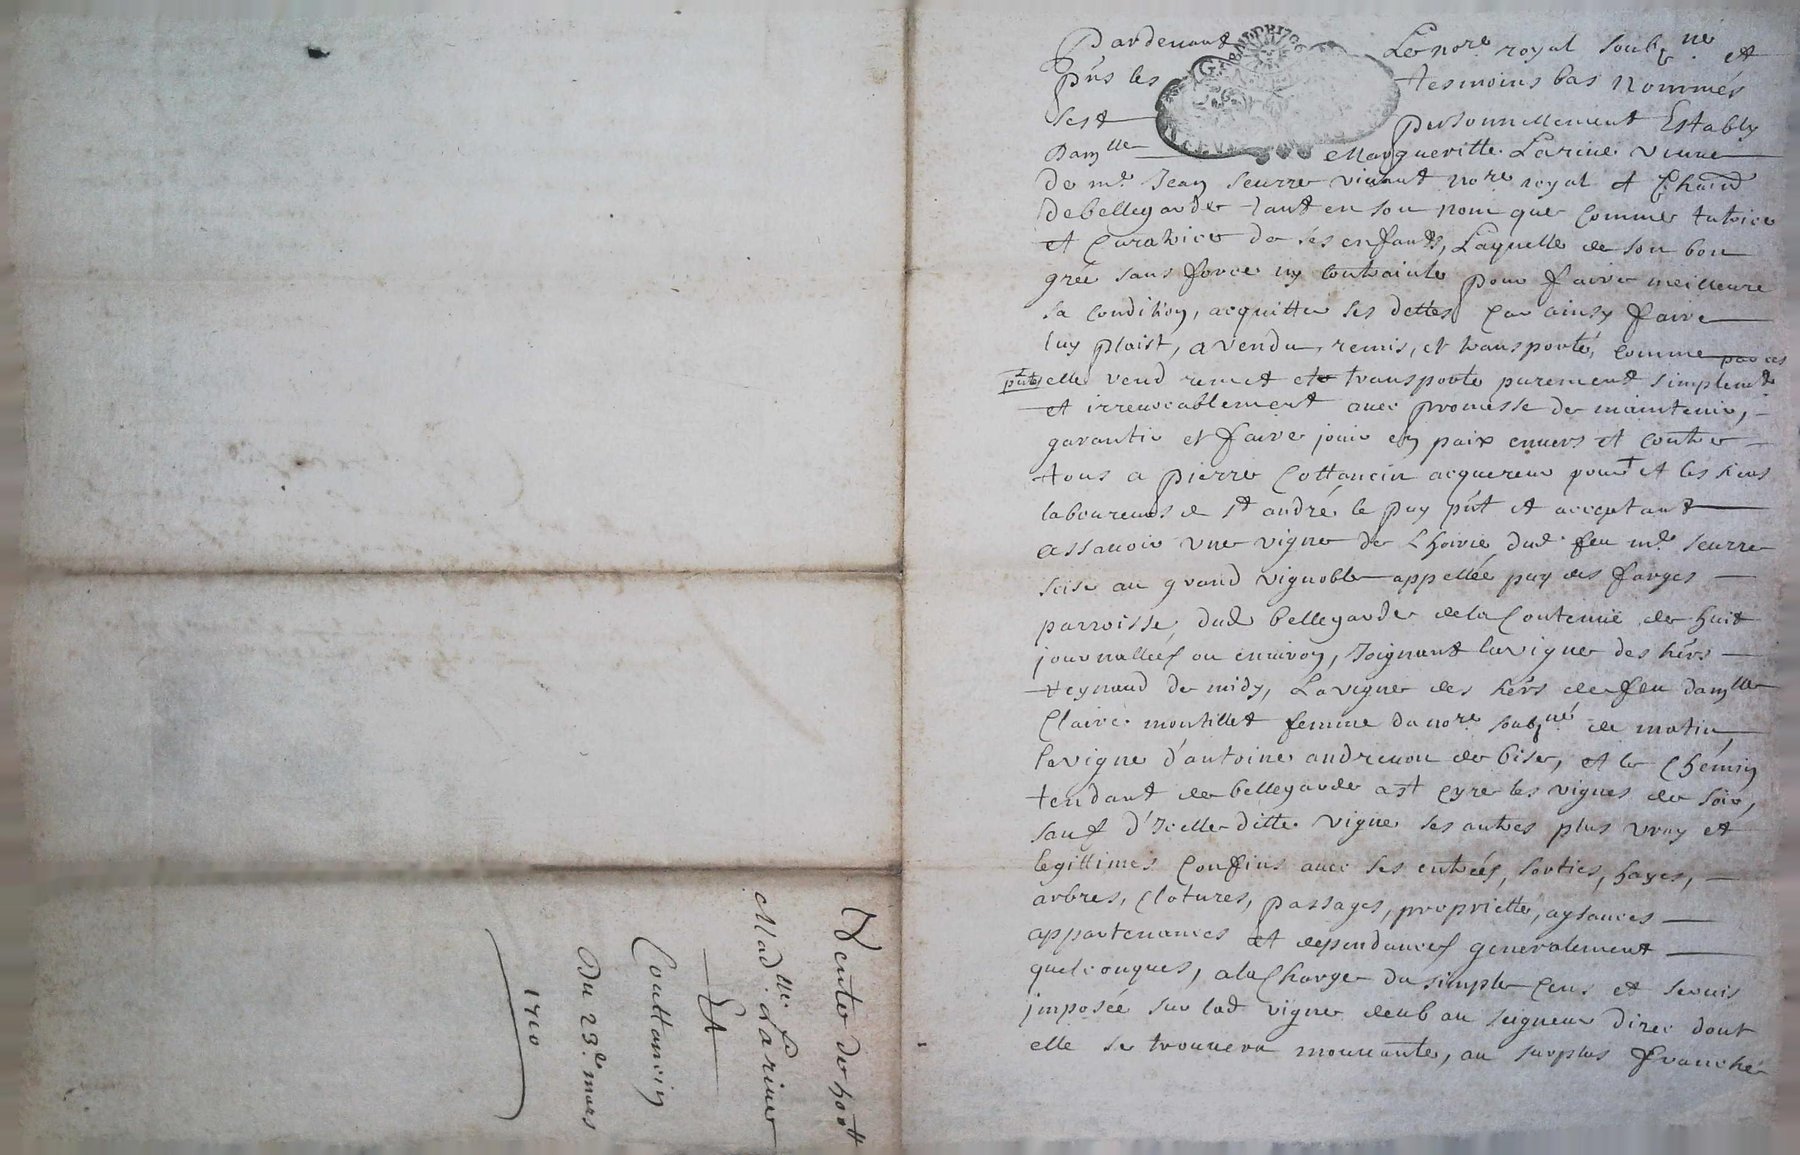 Pardeuant Le nore. royal soubne. et
pñs les tesmoins bas nommés
sest personnellement Estably
Damlle Margueritte Lariue vieuue
de me. Jean seurre viuant nore. royal et
de bellegarde tant en son nom que comme tutrice
et curatrice de ses enfants, Laquelle de son bon
gré sans force ny contrainte pour faire meilleure
sa condition, acquitter ses dettes car ainsy faire
luy plaist, a vendu, remis, et transporté, comme par ces
pñtes elle vend remet et transporte purement simplemt
et irreuocablement auec promesse de maintenir,
garantir et faire jouir en paix enuers et contre
tous a pierre Cottancin acquereur pour et les siens
laboureur de st andré le puy pñt et acceptant
assauoir vne vigne de Lhoirie dud. feu me. seurre
scise au grand vignoble appellée puy des farges
parroisse dud bellegarde de la Contenüe de huit
journallées ou enuiron, Joignant la vigne des hérs
reynaud de midy, La vigne des hérs de feu damlle
Claire montillet femme du nore. soubné de matin,
la vigne d'antoine andreuon de bise, et le chemin
tendant de bellegarde a st cyre les vignes de soir,
sauf d'Icelle ditte vigne ses autres plus vray et
legittimes Confins auec ses entrées, sorties, hayes,
arbres, Clotures, passages, propriette, aysances
appartenances et dependances generalement
quelconques, a la Charge du simple Cens et seruis
jmposée sur lad vigne deub au seigneur direc dont
elle se trouuera mouuante, au surplus franche
Vente de
Madlle. Lariue
Et
Couttancin
Du 23e mars
1710